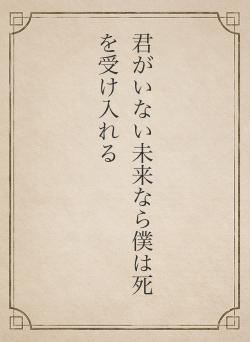 君がいない未来なら僕は死
を受け入れる